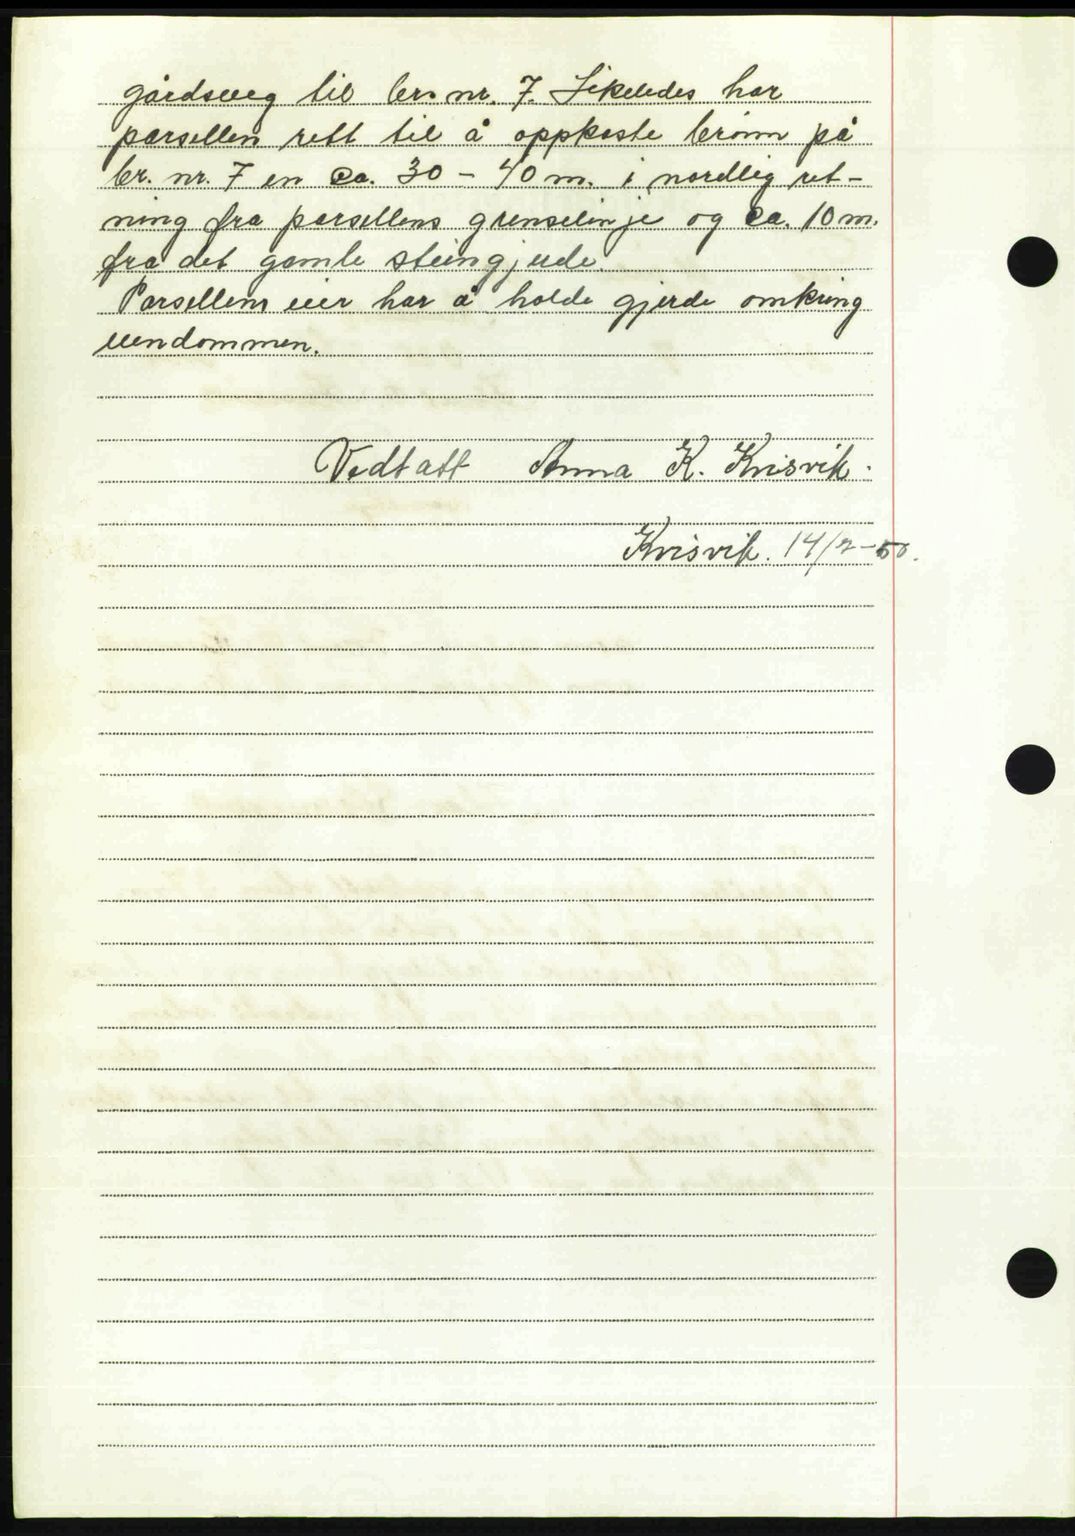 gårdsveg til br. nr. 7. Likeledes har
parsellen rett til å oppkaste brønn på
br. nr. 7 en ca. 30 - 40 m. i nordlig ret-
ning fra parsellens grenselinje og ca. 10 m.
fra det gamle steingjerde.
Parsellens eier har å holde gjerde omkring
eiendommen.
Vedtatt Anna K. Kvisvik.
Kvisvik. 14/2-50.